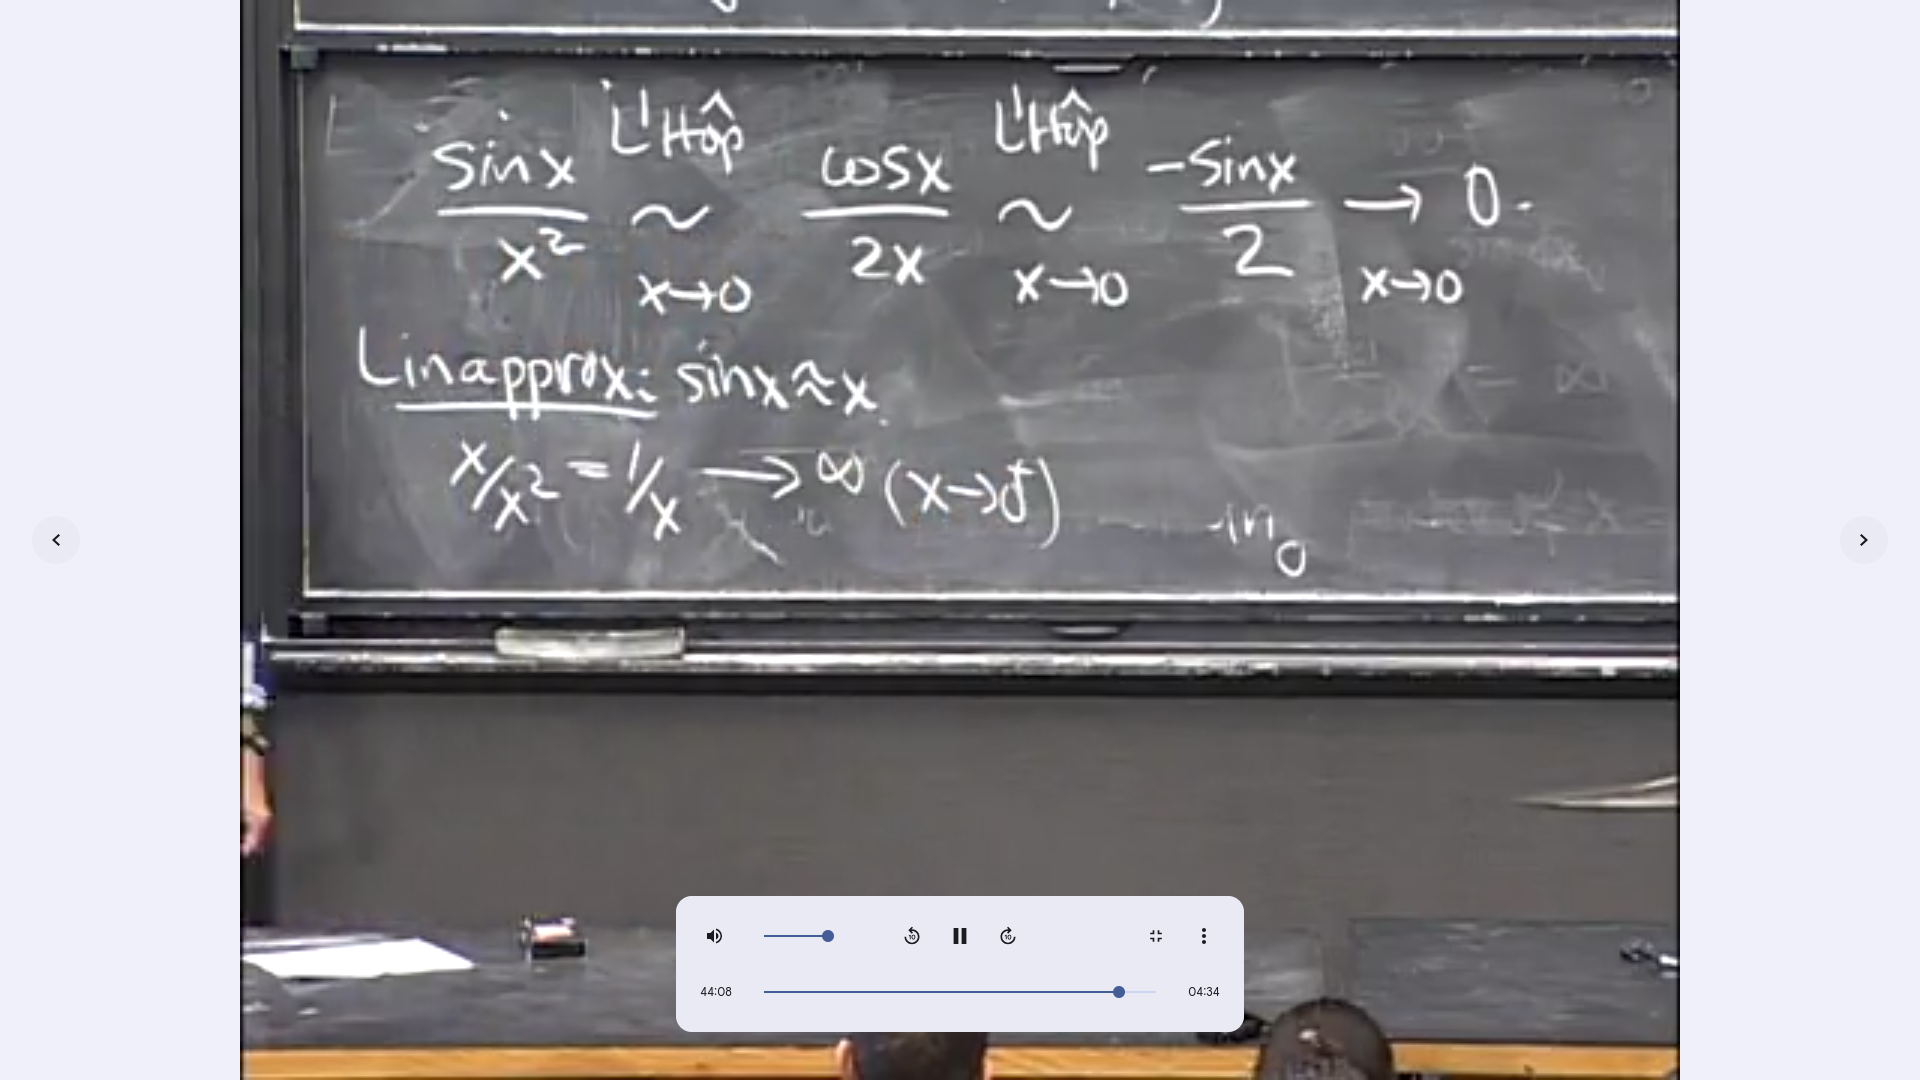 sin x / x² ~ L'Hôp x→0 cos x / 2x ~ L'Hôp x→0 -sin x / 2 → 0. x→0
Lin approx: sin x ≈ x
x/x² = 1/x → ∞ (x→0⁺)
44:08 04:34